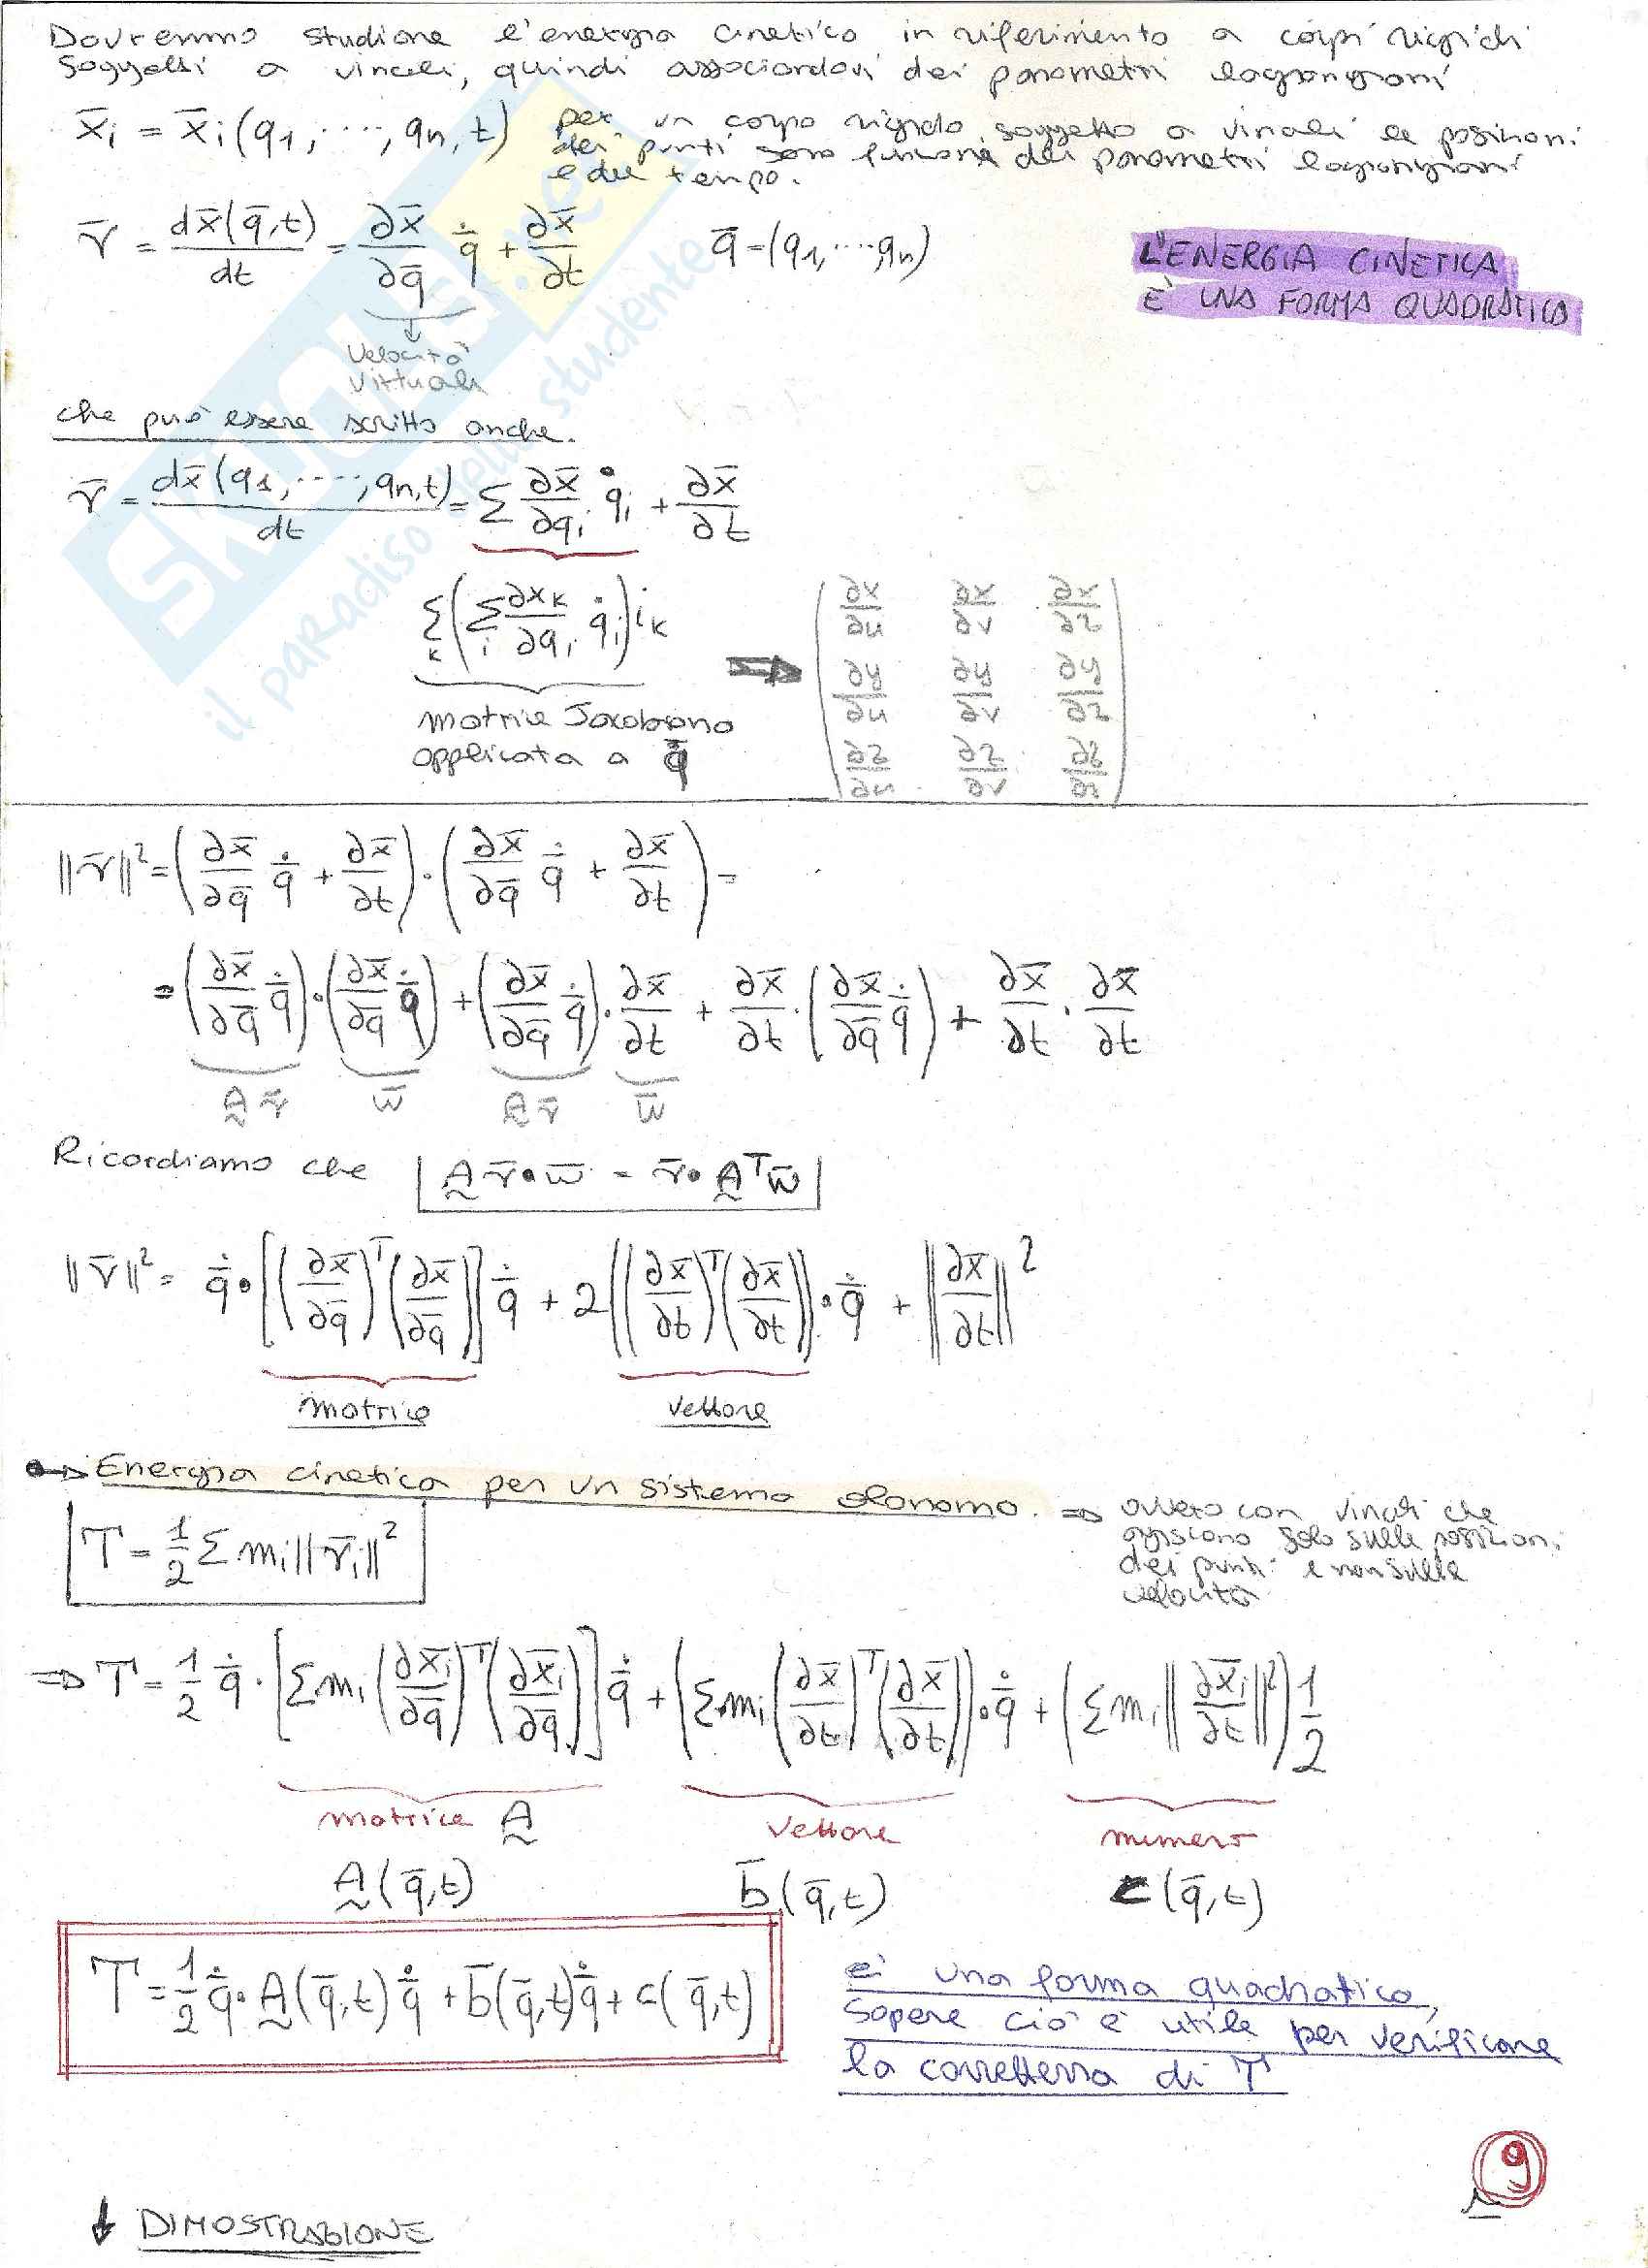 Dovremmo studiare l'energia cinetica in riferimento a corpi rigidi
soggetti a vincoli, quindi associandovi dei parametri lagrangiani
x̄i = x̄i(q1, ..., qn, t) per un corpo rigido soggetto a vincoli le posizioni
dei punti sono funzione dei parametri lagrangiani
e del tempo.
v̄ = dx̄(q̄,t)/dt = ∂x̄/∂q̄ q̄̇ + ∂x̄/∂t q̄ = (q1, ..., qn)
L'ENERGIA CINETICA
E' UNA FORMA QUADRATICA
Velocità
Virtuali
che può essere scritto anche.
v̄ = dx̄(q1, ..., qn,t)/dt = Σ ∂x̄/∂qi q̇i + ∂x̄/∂t
Σk (Σi ∂xk/∂qi q̇i) ik ⇒ (∂x/∂u ∂x/∂v ∂x/∂z
∂y/∂u ∂y/∂v ∂y/∂z
∂z/∂u ∂z/∂v ∂z/∂z)
matrice Jacobiana
applicata a q̄̇
||v̄||² = (∂x̄/∂q̄ q̄̇ + ∂x̄/∂t) · (∂x̄/∂q̄ q̄̇ + ∂x̄/∂t) =
= (∂x̄/∂q̄ q̄̇) · (∂x̄/∂q̄ q̄̇) + (∂x̄/∂q̄ q̄̇) · ∂x̄/∂t + ∂x̄/∂t · (∂x̄/∂q̄ q̄̇) + ∂x̄/∂t · ∂x̄/∂t
A v̄ w̄ A v̄ w̄
Ricordiamo che A v̄ • w̄ = v̄ • Aᵀ w̄
||v̄||² = q̄̇ • [(∂x̄/∂q̄)ᵀ (∂x̄/∂q̄)] q̄̇ + 2((∂x̄/∂t)ᵀ (∂x̄/∂t)) • q̄̇ + ||∂x̄/∂t||²
matrice vettore
Energia cinetica per un sistema olonomo. ⇒ ovvero con vincoli che
agiscono solo sulle posizioni
dei punti e non sulle
velocità
T = 1/2 Σ mi ||v̄i||²
⇒ T = 1/2 q̄̇ · [Σ mi (∂x̄i/∂q̄)ᵀ (∂x̄i/∂q̄)] q̄̇ + (Σ mi (∂x̄/∂t)ᵀ (∂x̄/∂t)) • q̄̇ + (Σ mi ||∂x̄i/∂t||²) 1/2
matrice A vettore numero
A(q̄,t) b̄(q̄,t) c(q̄,t)
T = 1/2 q̄̇ • A(q̄,t) q̄̇ + b̄(q̄,t) q̄̇ + c(q̄,t)
e' una forma quadratica,
sapere ciò è utile per verificare
la correttezza di T
9
↓ DIMOSTRAZIONE
SKUOLA.net
il paradiso dello studente